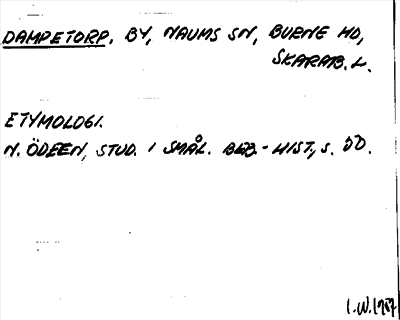 DAMPETORP. BY, NAUMS SN, BURNE HD,
SKARAB. L.
ETYMOLOGI.
N. ÖDEEN, STUD. I SMÅL. BEB.-HIST., S.
I.W. 1987